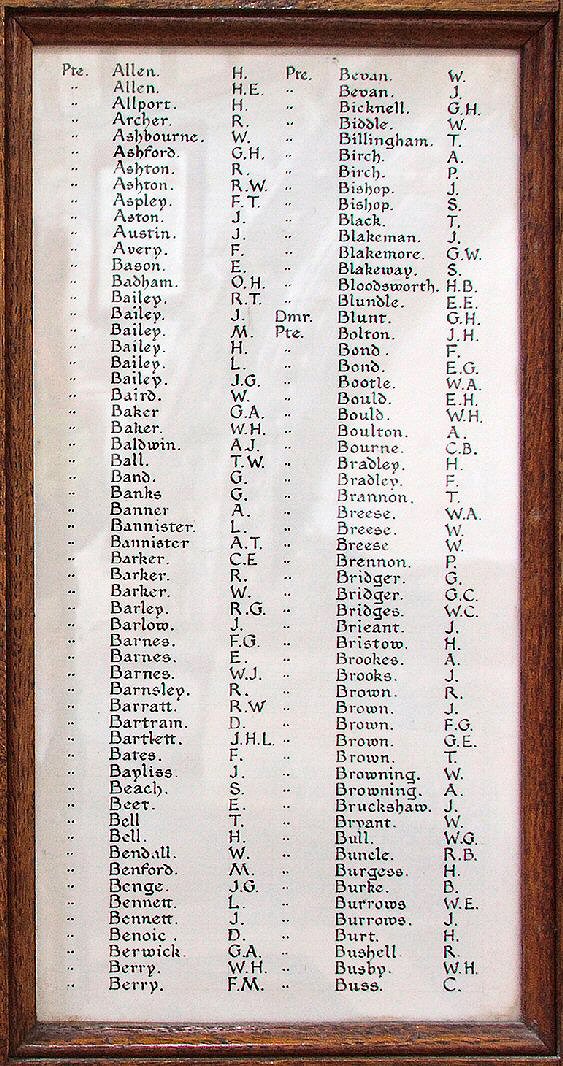 Pte. Allen. H.
" Allen. H.E.
" Allport. H.
" Archer. R.
" Ashbourne. W.
" Ashford. G.H.
" Ashton. R.
" Ashton. R.W.
" Aspley. F.T.
" Aston. J.
" Austin. J.
" Avery. F.
" Bason. E.
" Badham. O.H.
" Bailey. R.T.
" Bailey. J.
" Bailey. M.
" Bailey. H.
" Bailey. L.
" Bailey. J.G.
" Baird. W.
" Baker G.A.
" Baker. W.H.
" Baldwin. A.J.
" Ball. T.W.
" Band. G.
" Banks G.
" Banner A.
" Bannister. L.
" Bannister A.T.
" Barker. C.E
" Barker. R.
" Barker. W.
" Barley. R.G.
" Barlow. J.
" Barnes. F.G.
" Barnes. E.
" Barnes. W.J.
" Barnsley. R.
" Barratt. R.W
" Bartram. D.
" Bartlett. J.H.L.
" Bates. F.
" Bayliss. J.
" Beach. S.
" Beet. E.
" Bell T.
" Bell. H.
" Bendall. W.
" Benford. M.
" Benge. J.G.
" Bennett. L.
" Bennett. J.
" Benoic. D.
" Berwick. G.A.
" Berry. W.H.
" Berry. F.M.
Pte. Bevan. W.
" Bevan. J.
" Bicknell. G.H.
" Biddle. W.
" Billingham. T.
" Birch. A.
" Birch. P.
" Bishop. J.
" Bishop. S.
" Black. T.
" Blakeman. J.
" Blakemore. G.W.
" Blakeway. S.
" Bloodsworth. H.B.
" Blundle. E.E.
Dmr. Blunt. G.H.
Pte. Bolton. J.H.
" Bond. F.
" Bond. E.G.
" Bootle. W.A.
" Bould. E.H.
" Bould. W.H.
" Boulton. A.
" Bourne. C.B.
" Bradley. H.
" Bradley. F.
" Brannon. T.
" Breese. W.A.
" Breese. W.
" Breese W.
" Brennon. P.
" Bridger. G.
" Bridger. G.C.
" Bridges. W.C.
" Brieant. J.
" Bristow. H.
" Brookes. A.
" Brooks. J.
" Brown. R.
" Brown. J.
" Brown. F.G.
" Brown. G.E.
" Brown. T.
" Browning. W.
" Browning. A.
" Bruckshaw. J.
" Bryant. W.
" Bull. W.G.
" Buncle. R.B.
" Burgess. H.
" Burke. B.
" Burrows W.E.
" Burrows. J.
" Burt. H.
" Bushell R.
" Busby. W.H.
" Buss. C.